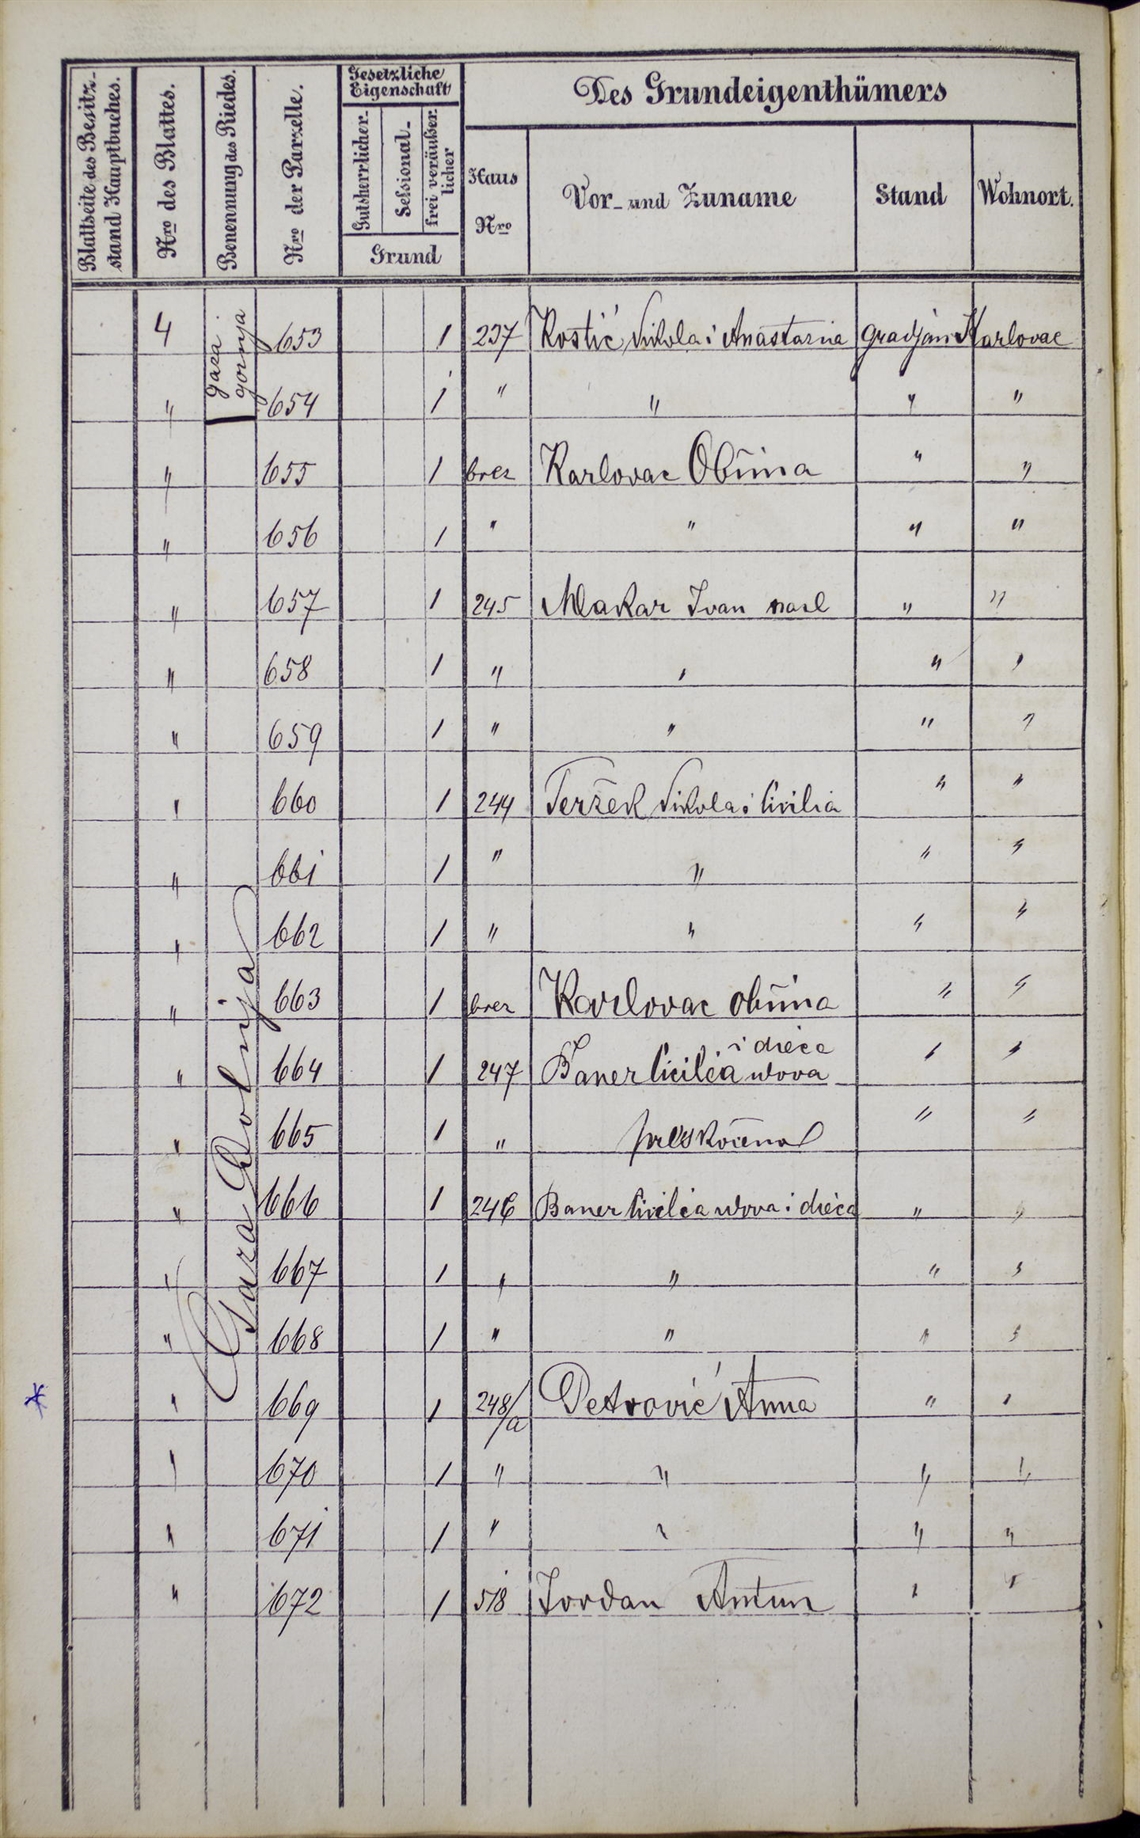 Blattseite des Besitz-
stand Hauptbuches.
Nro des Blattes.
Benennung des Riedes.
Nro der Parzelle.
Gesetzliche
Eigenschaft
Gutsherrlicher.
Sessional-
frei veräußer
licher
Grund
Des Grundeigenthümers
Haus
Nro
Vor- und Zuname
Stand
Wohnort.
gaza
gornja
4 653 1 237 Kostić Nikola i Anastazia gradjan Karlovac
" 654 1 " " " "
" 655 1 brez Karlovac Obćina " "
" 656 1 " " " "
" 657 1 245 Makar Ivan nasl " "
" 658 1 " " " "
" 659 1 " " " "
" 660 1 244 Teržek Nikola i Cicilia " "
" 661 1 " " " "
" 662 1 " " " "
Gaza Dolnja
" 663 1 brez Karlovac obćina " "
i dieca
" 664 1 247 Baner Cicilia udova " "
" 665 1 " preskočeno " "
" 666 1 246 Baner Cicilia udova i dieca " "
" 667 1 " " " "
" 668 1 " " " "
* " 669 1 248/a Petrović Anna " "
" 670 1 " " " "
" 671 1 " " " "
" 672 1 518 Jordan Antun " "